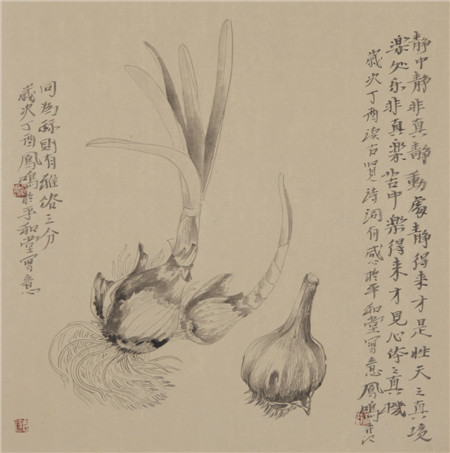 静中静非真静動處静得来才是性天之真境
樂处乐非真樂苦中樂得来才見心体之真機
歲次丁酉读古贤诗词有感於平和堂写意鳳鳴
同为则有雅俗三分
歲次丁酉鳳鳴於平和堂写意